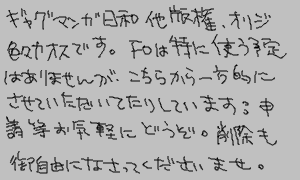 ギャグマンガ日和 他 版権、オリジ
色々カオスです。FOは特に使う予定
はありませんが、こちらから一方的に
させていただいてたりしています。申
請等お気軽にどうぞ。削除も
御自由になさってくださいませ。